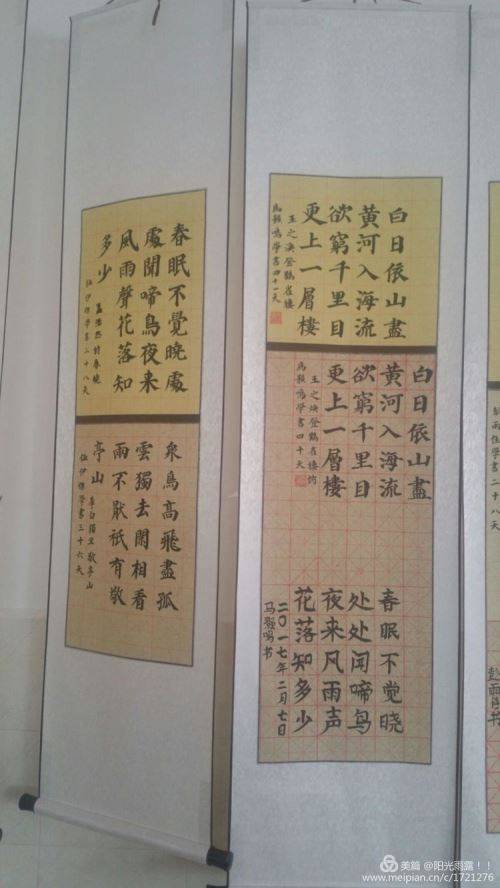 春眠不覺曉處
處聞啼鳥夜来
風雨聲花落知
多少
孟浩然詩春曉
學書二十八天
衆鳥高飛盡孤
雲獨去閑相看
雨不厭祇有敬
亭山
李白獨坐敬亭山
學書三十六天
白日依山盡
黄河入海流
欲窮千里目
更上一層樓
王之渙登鸛雀樓
學書四十一天
白日依山盡
黄河入海流
欲窮千里目
更上一層樓
王之渙登鸛雀樓
學書四十天
春眠不觉晓
处处闻啼鸟
夜来风雨声
花落知多少
二〇一七年二月七日
學書二十八天
美篇 @阳光雨露！！
www.meipian.cn/c/1721276